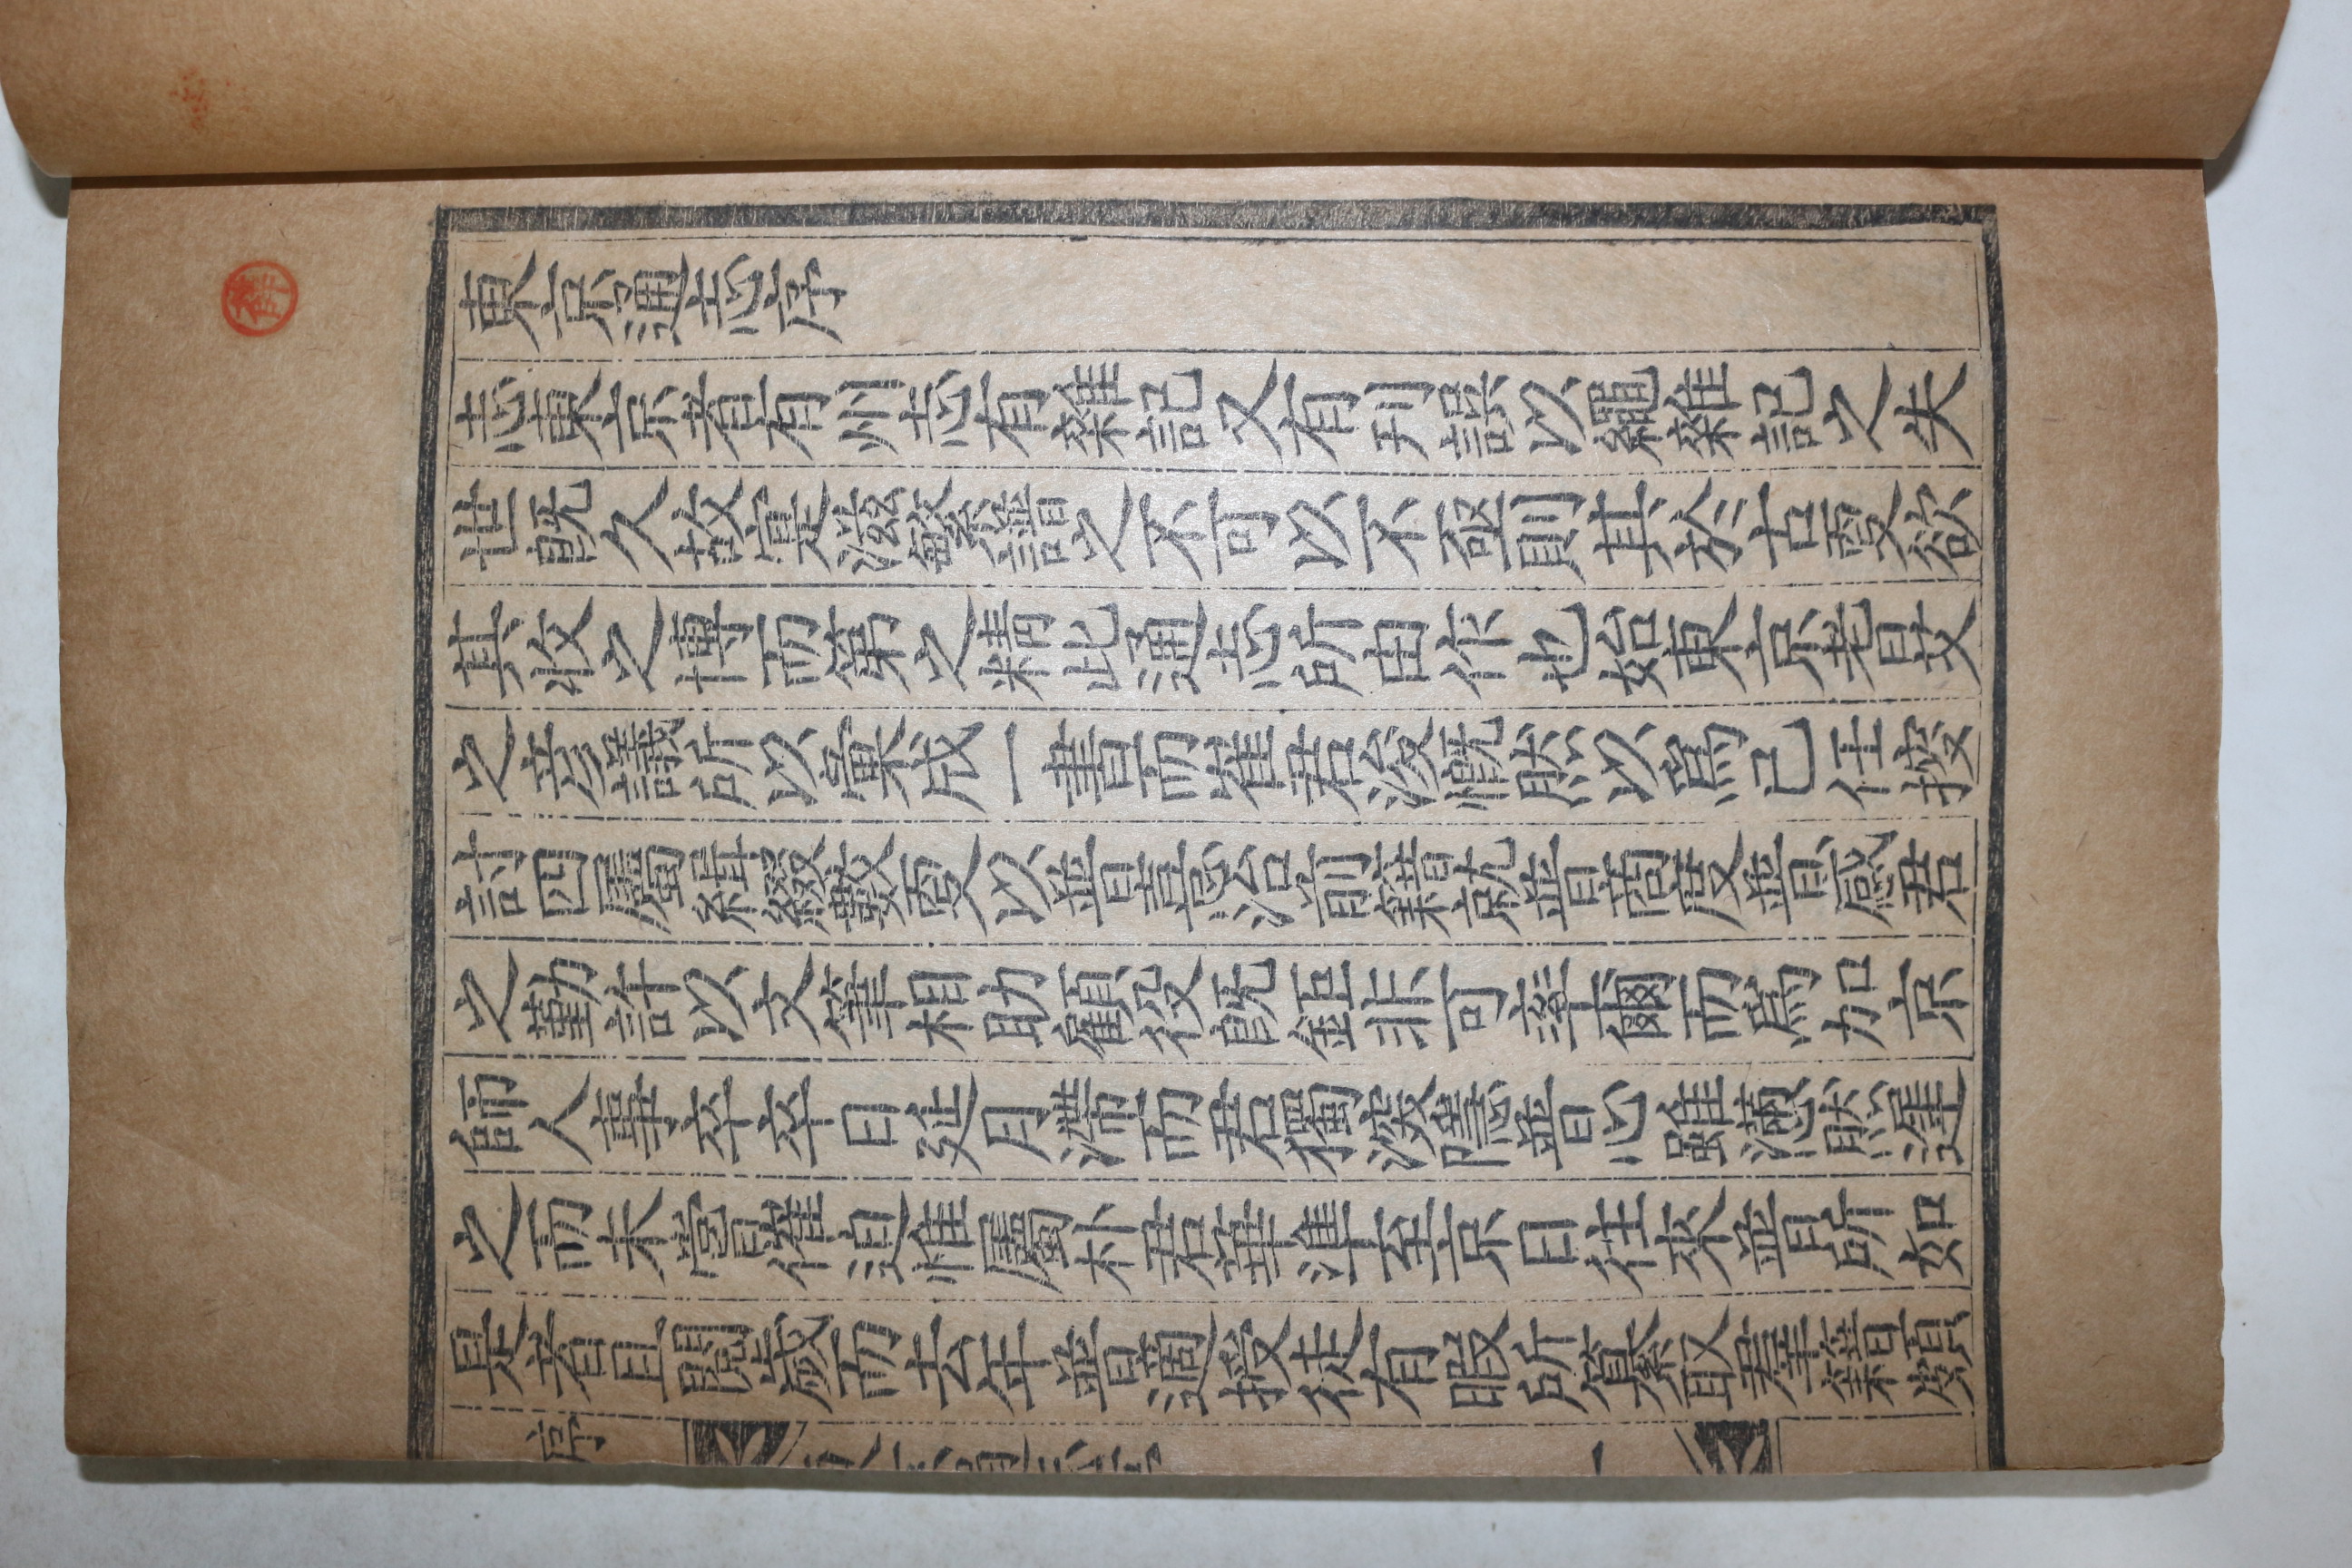 東京通志序
志東京者有州志有雜記又有刊誤以繩雜記之失
世旣久故寔滋繁譜之不可以不亟則其於古㪅欲
其收之博而第之精此通志所由作也始東京耆艾
之彦議所以彙成一書而崔君浚慨然以爲己任搜
討四屬緝綴數㪅以普憙治前籍就普商度普感君
之勤許以文筆相助顧役旣鉅非可率爾而爲加京
師人事卒卒日延月滯而君獨深隱普心雖懣然遲
之而未嘗催迫惟屬朴君華準至京日往來普所如
是者且閱歲而去年普適授徒有暇所纂取羣籍頗
序
一